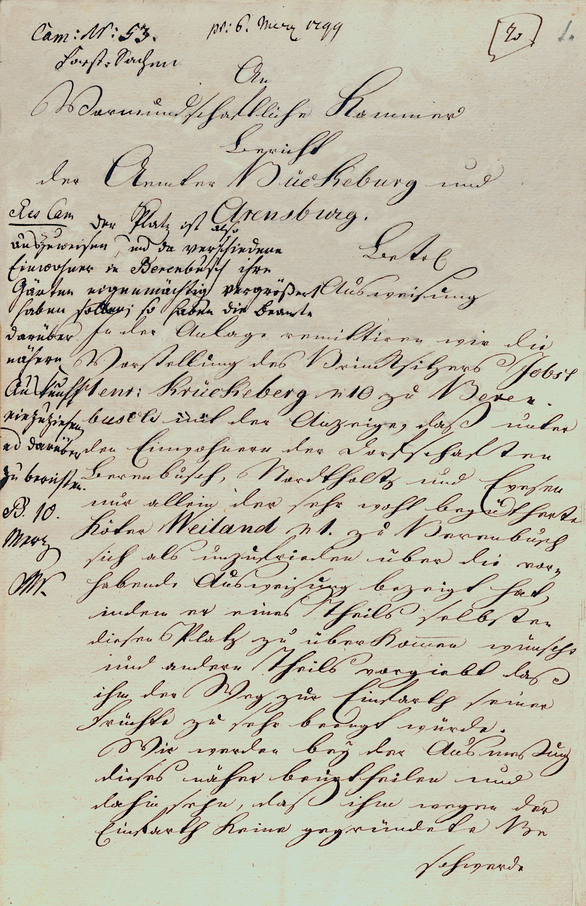 Cam: N: 53.
pr: 6. Merz 1799
20
1.
Forst-Sachen
An
Vormundschaftliche Kammer
Bericht
der Aemter Bückeburg und
Arensburg.
Res Cam
der Platz ist also
auszuweisen, und da verschiedene
Einwohner in Berenbusch ihre
Gärten eigenmächtig vergrößert
haben sollen; so haben die Beamte
darüber
nähern
einzuziehen
und darüber
zu berichten.
B. 10.
Merz
Betr.
Ausweisung
In der Anlage remittiren wir die
Vorstellung des Brinksitzers Jobst
Henr: Krückeberg n 10 zu Beren-
busch mit der Anzeige, daß unter
den Einwohnern der Dorfschaften
Berenbusch, Nordholtz und Evesen
nur allein der sehr wohl begütherte
Köter Weiland n 1. zu Berenbusch
sich als unzufrieden über die vor-
habende Ausweisung bezeigt hat,
indem er eines Theils selbsten
diesen Platz zu überkommen wünscht
und andern Theils vorgiebt daß
ihm der Weg zur Einfarth seiner
Früchte zu sehr beengt würde.
Wir werden bey der Ausmessung
dieses näher beurtheilen und
dahin sehn, daß ihm wegen der
Einfarth keine gegründete Be
schwerde